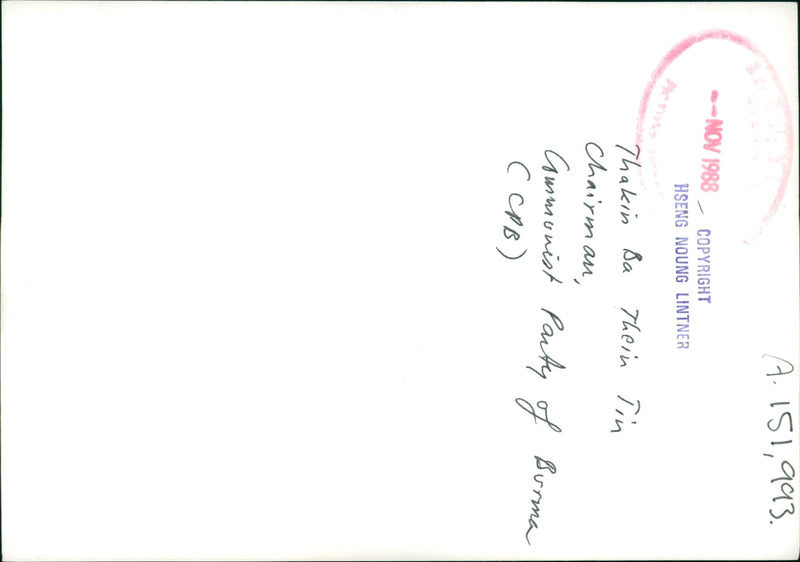 A. 151,993.
-- NOV 1988
— COPYRIGHT
HSENG NOUNG LINTNER
Thakin Ba Thein Tin
Chairman,
Communist Party of Burma
(CPB)